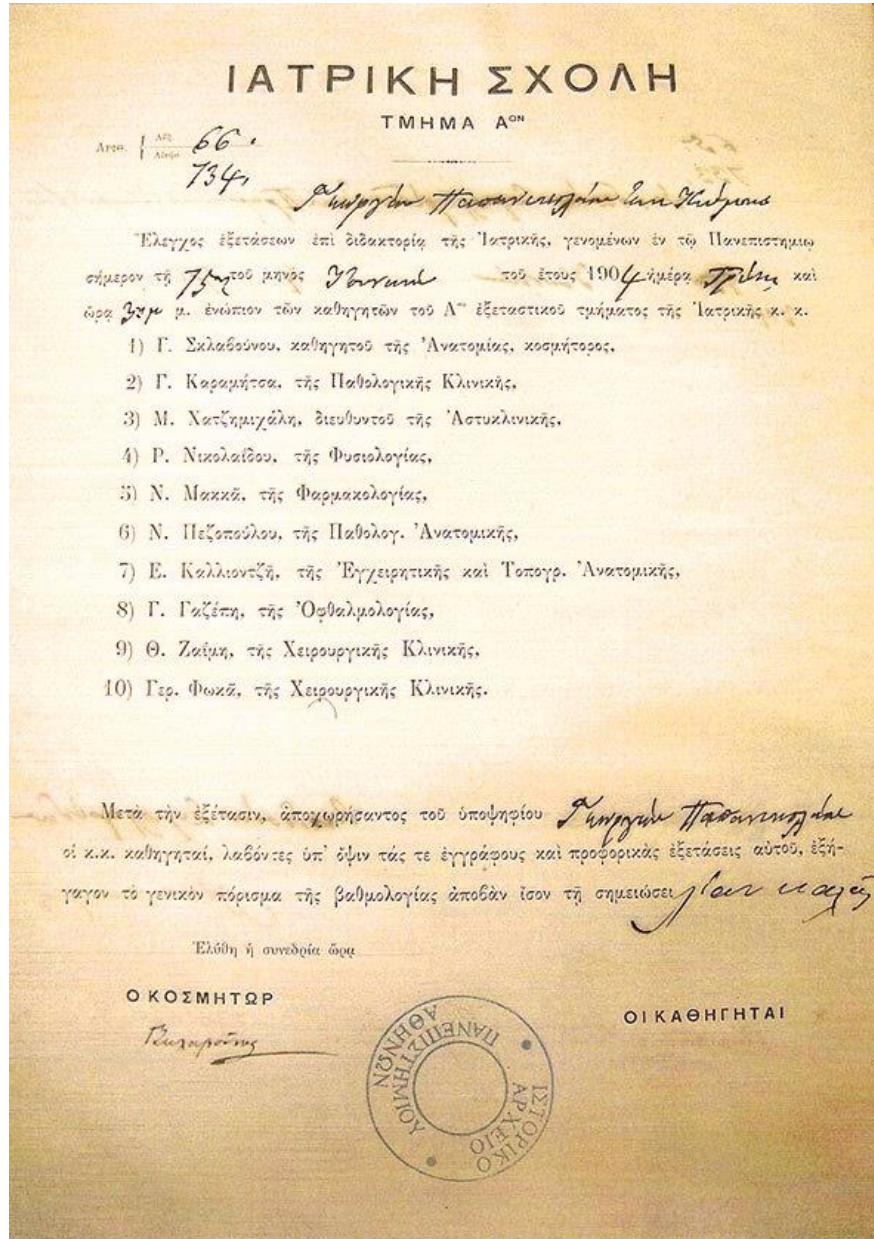 ΙΑΤΡΙΚΗ ΣΧΟΛΗ
ΤΜΗΜΑ Α^ΟΝ
Αριθ. 66.
734,
Γεωργίου Παπανικολάου ἐκ Κύμης
Ἔλεγχος ἐξετάσεων ἐπὶ διδακτορίᾳ τῆς Ἰατρικῆς, γενομένων ἐν τῷ Πανεπιστημίῳ
σήμερον τῇ 15ῃ τοῦ μηνὸς Ἰουνίου τοῦ ἔτους 1904 ἡμέρᾳ Τρίτῃ καὶ
ὥρᾳ μ. ἐνώπιον τῶν καθηγητῶν τοῦ Α^ου ἐξεταστικοῦ τμήματος τῆς Ἰατρικῆς κ. κ.
1) Γ. Σκλαβούνου, καθηγητοῦ τῆς Ἀνατομίας, κοσμήτορος,
2) Γ. Καραμήτσα, τῆς Παθολογικῆς Κλινικῆς,
3) Μ. Χατζημιχάλη, διευθυντοῦ τῆς Ἀστυκλινικῆς,
4) Ρ. Νικολαΐδου, τῆς Φυσιολογίας,
5) Ν. Μακκᾶ, τῆς Φαρμακολογίας,
6) Ν. Πεζοπούλου, τῆς Παθολογ. Ἀνατομικῆς,
7) Ε. Καλλιοντζῆ, τῆς Ἐγχειρητικῆς καὶ Τοπογρ. Ἀνατομικῆς,
8) Γ. Γαζέπη, τῆς Ὀφθαλμολογίας,
9) Θ. Ζαΐμη, τῆς Χειρουργικῆς Κλινικῆς,
10) Γερ. Φωκᾶ, τῆς Χειρουργικῆς Κλινικῆς.
Μετὰ τὴν ἐξέτασιν, ἀποχωρήσαντος τοῦ ὑποψηφίου Γεωργίου Παπανικολάου
οἱ κ.κ. καθηγηταί, λαβόντες ὑπ' ὄψιν τάς τε ἐγγράφους καὶ προφορικὰς ἐξετάσεις αὐτοῦ, ἐξή-
γαγον τὸ γενικὸν πόρισμα τῆς βαθμολογίας ἀποβὰν ἴσον τῇ σημειώσει λίαν καλῶς
Ἐλύθη ἡ συνεδρία ὥρᾳ
Ο ΚΟΣΜΗΤΩΡ
ΟΙ ΚΑΘΗΓΗΤΑΙ
ΠΑΝΕΠΙΣΤΗΜΙΟΥ ΑΘΗΝΩΝ
ΙΣΤΟΡΙΚΟ ΑΡΧΕΙΟ